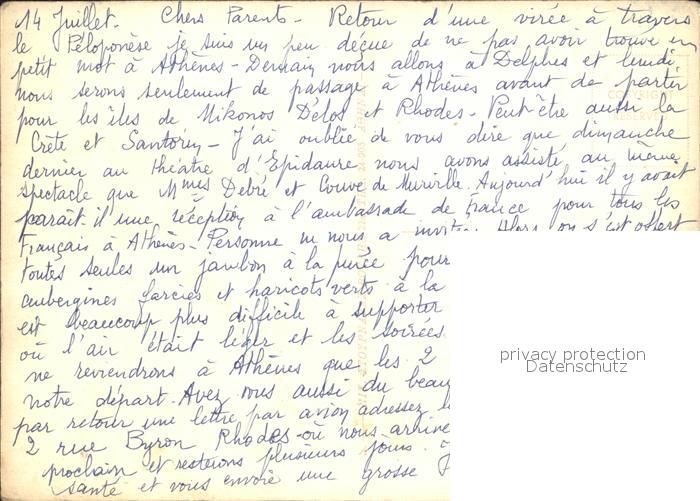 14 Juillet. Chers Parents - Retour d'une virée à travers
le Péloponèse je suis un peu déçue de ne pas avoir trouvé un
petit mot à Athènes - Demain nous allons à Delphes et lundi
nous serons seulement de passage à Athènes avant de partir
pour les îles de Mikonos Délos et Rhodes - Peut-être aussi la
Crète et Santorin - J'ai oublié de vous dire que dimanche
dernier au théâtre d'Epidaure nous avons assisté au même
spectacle que Mmes Debré et Couve de Murville. Aujourd'hui il y avait
paraît-il une réception à l'ambassade de France pour tous les
Français à Athènes - Personne ne nous a Alors on s'est offert
toutes seules un jambon à la purée pour
aubergines farcies et haricots verts à la
est beaucoup plus difficile à supporter
où l'air était léger et les soirées
ne reviendrons à Athènes que les 2
notre départ. Avez vous aussi du beau
par retour une lettre par avion adressez
2 rue Byron Rhodes - où nous
prochain et resterons plusieurs jours.
santé et vous envoie une grosse
privacy protection
Datenschutz